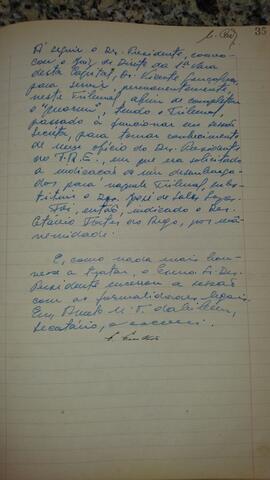 35
A seguir o Dr. Presidente, convo-
cou o Juiz de Direito da 1ª vara
desta Capital, Dr. Vicente Gonçalves,
para servir, permanentemente,
neste Tribunal, afim de completar
o "quorum", tendo o Tribunal,
passado a funcionar em sessão
secreta, para tomar conhecimento
de um ofício do Dr. Presidente
no T.R.E., em que era solicitado
a indicação de um desembarga-
dor, para naquele Tribunal, subs-
tituir o Des. José de
Foi, então, indicado o Des.
por una-
nimidade.
E, como nada mais hou-
vesse a tratar, o Exmo. Sr. Des.
Presidente encerrou a sessão
com as formalidades legais.
Eu,
Secretário, o escrevi.